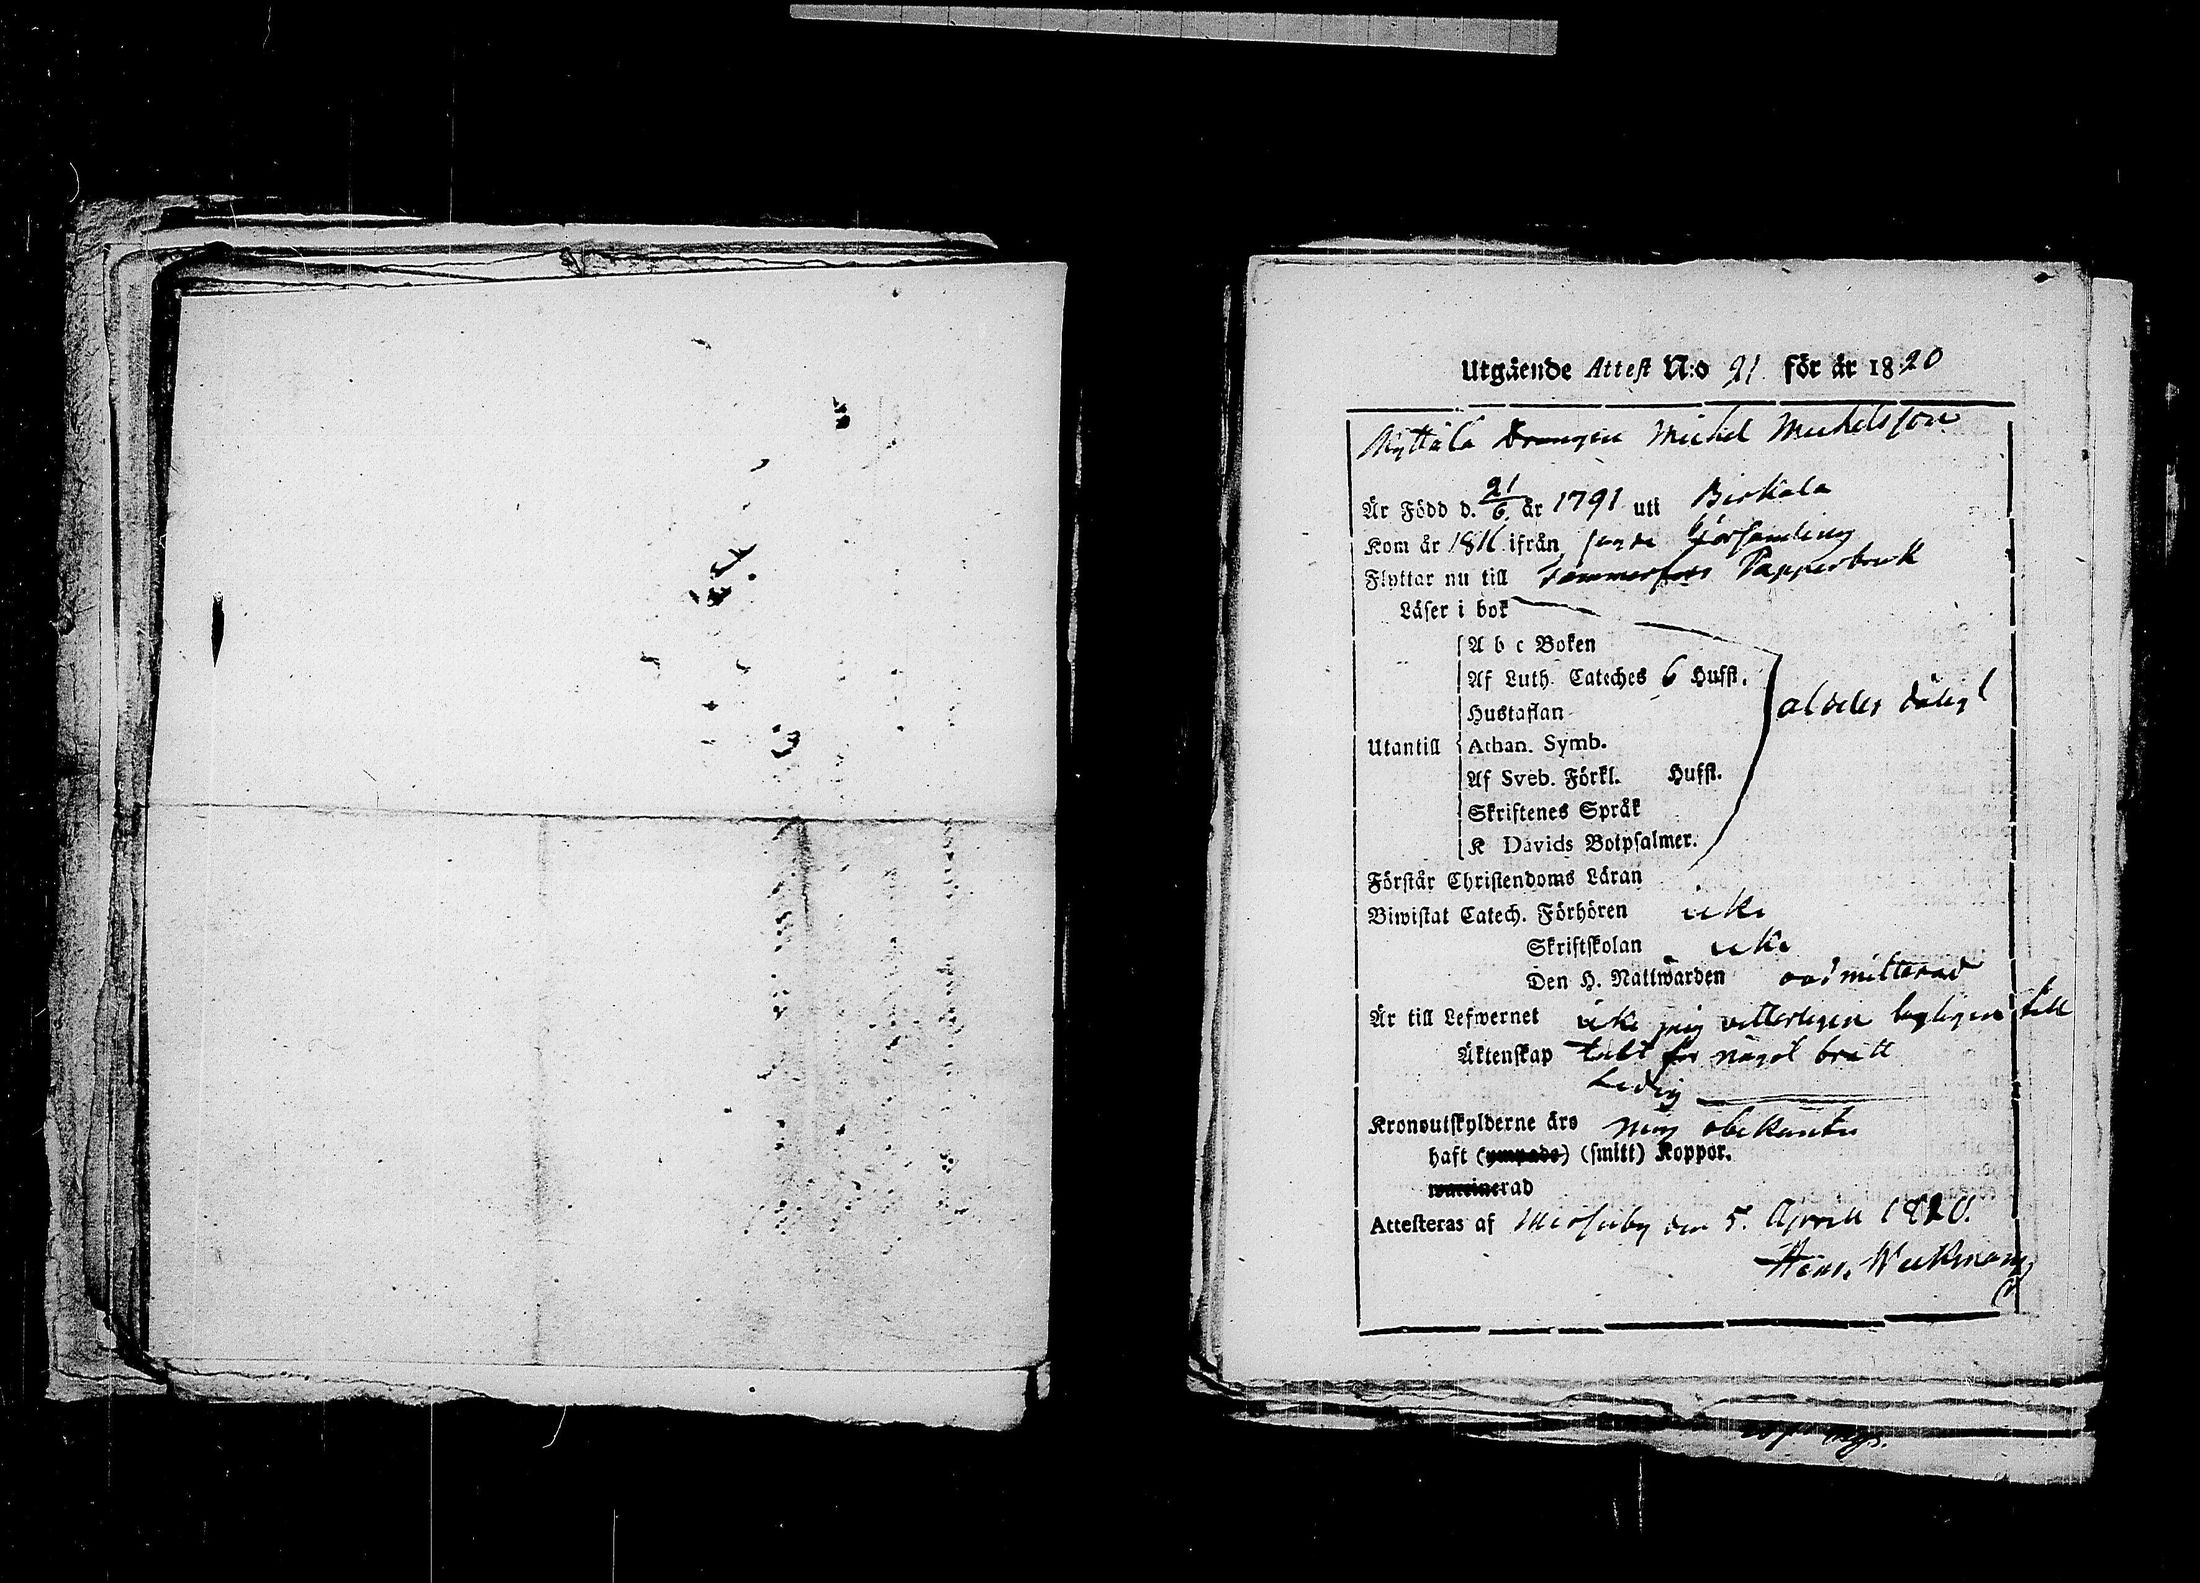 Utgående Attest N:o 21 för år 1820
Kyttälä Drängen Michel Michelsson
Är Född d. 21/6 år 1791 uti Birkala
Kom år 1816 ifrån sagde Församling
Flyttar nu till Tammerfors Papperbruk
Läser i bok
A b c Boken
Af Luth Cateches 6 Hufst.
Hustaflan
alldeles dåligt
Utantill Athan. Symb.
Af Sveb. Förkl. Hufst.
Skriftenes Språk
K Davids Botpsalmer.
Förstår Christendoms Läran
Biwistat Catech. Förhören icke
Skriftskolan icke
Den H. Nattwarden oadmitterad
Är till Lefwernet icke mig vetterligen lagligen till
Äktenskap talt för något brått
Ledig
Kronoutskylderne äro mig obekante
haft (ympade) (smitt) Koppor.
waccinerad
Attesteras af Messuby den 5. April 1820.
Henr. Weckman